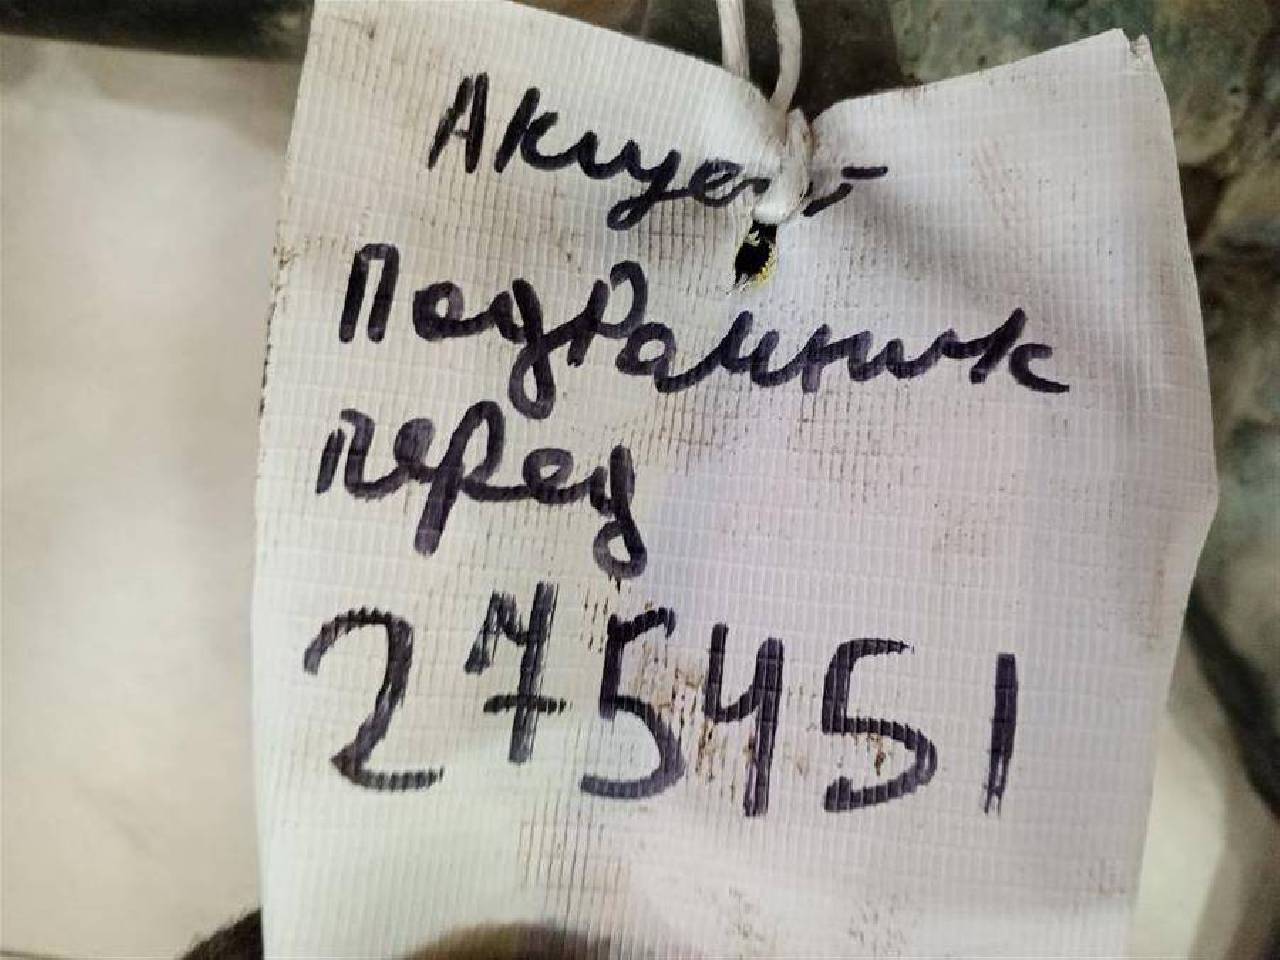 Акцент
Подрамник
перед
275451